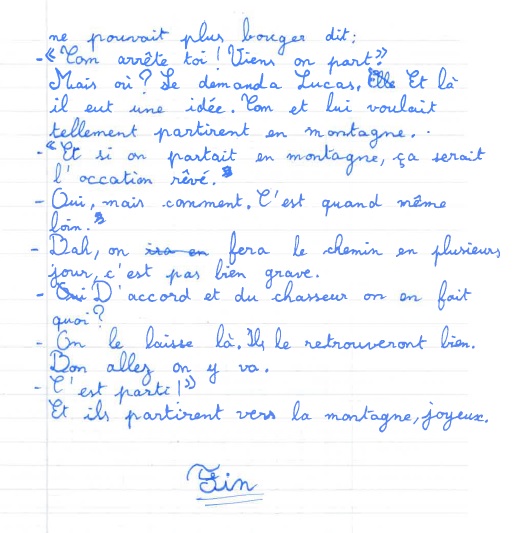 ne pouvait plus bouger dit:
-« Tom arrête toi ! Viens on part.»
Mais où ? Se demanda Lucas. Et là
il eut une idée. Tom et lui voulait
tellement partirent en montagne..
-"Et si on partait en montagne, ça serait
l'occation rêvé.
- Oui, mais comment. C'est quand même
loin.
- Bah, on fera le chemin en plusieurs
jour, c'est pas bien grave.
- D'accord et du chasseur on en fait
quoi ?
- On le laisse là. Ils le retrouveront bien.
Bon allez on y va.
- C'est parti !»
Et ils partirent vers la montagne, joyeux.
Fin